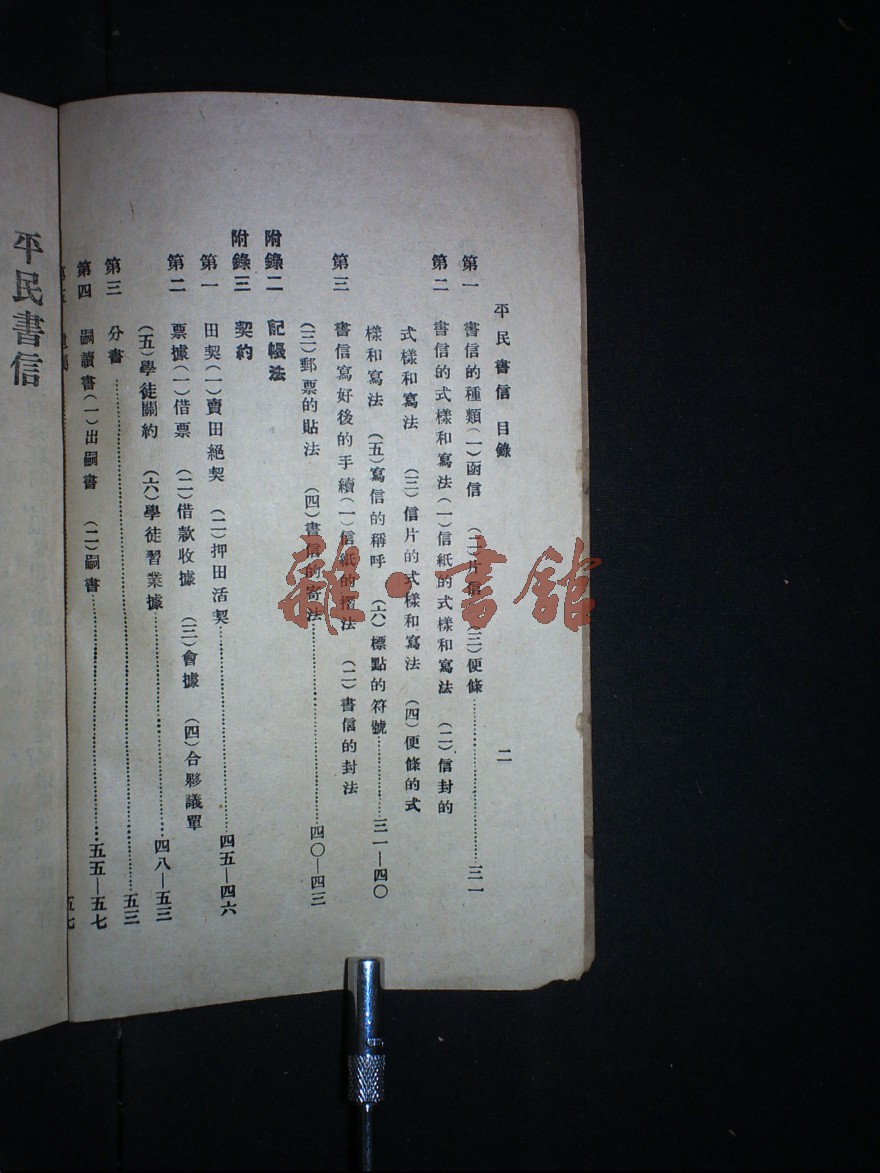 平民書信 目錄 二
第一 書信的種類(一)函信 (二)片信 (三)便條……三一
第二 書信的式樣和寫法(一)信紙的式樣和寫法 (二)信封的
式樣和寫法 (三)信片的式樣和寫法 (四)便條的式
樣和寫法 (五)寫信的稱呼 (六)標點的符號……三一—四〇
第三 書信寫好後的手續(一)信紙的摺法 (二)書信的封法
(三)郵票的貼法 (四)書信的寄法……四〇—四三
附錄二 記帳法
附錄三 契約
第一 田契(一)賣田絕契 (二)押田活契……四五—四六
第二 票據(一)借票 (二)借款收據 (三)會據 (四)合夥議單
(五)學徒關約 (六)學徒習業據……四八—五三
第三 分書……五三
第四 嗣讀書(一)出嗣書 (二)嗣書……五五—五七
五七
平民書信
雜·書館